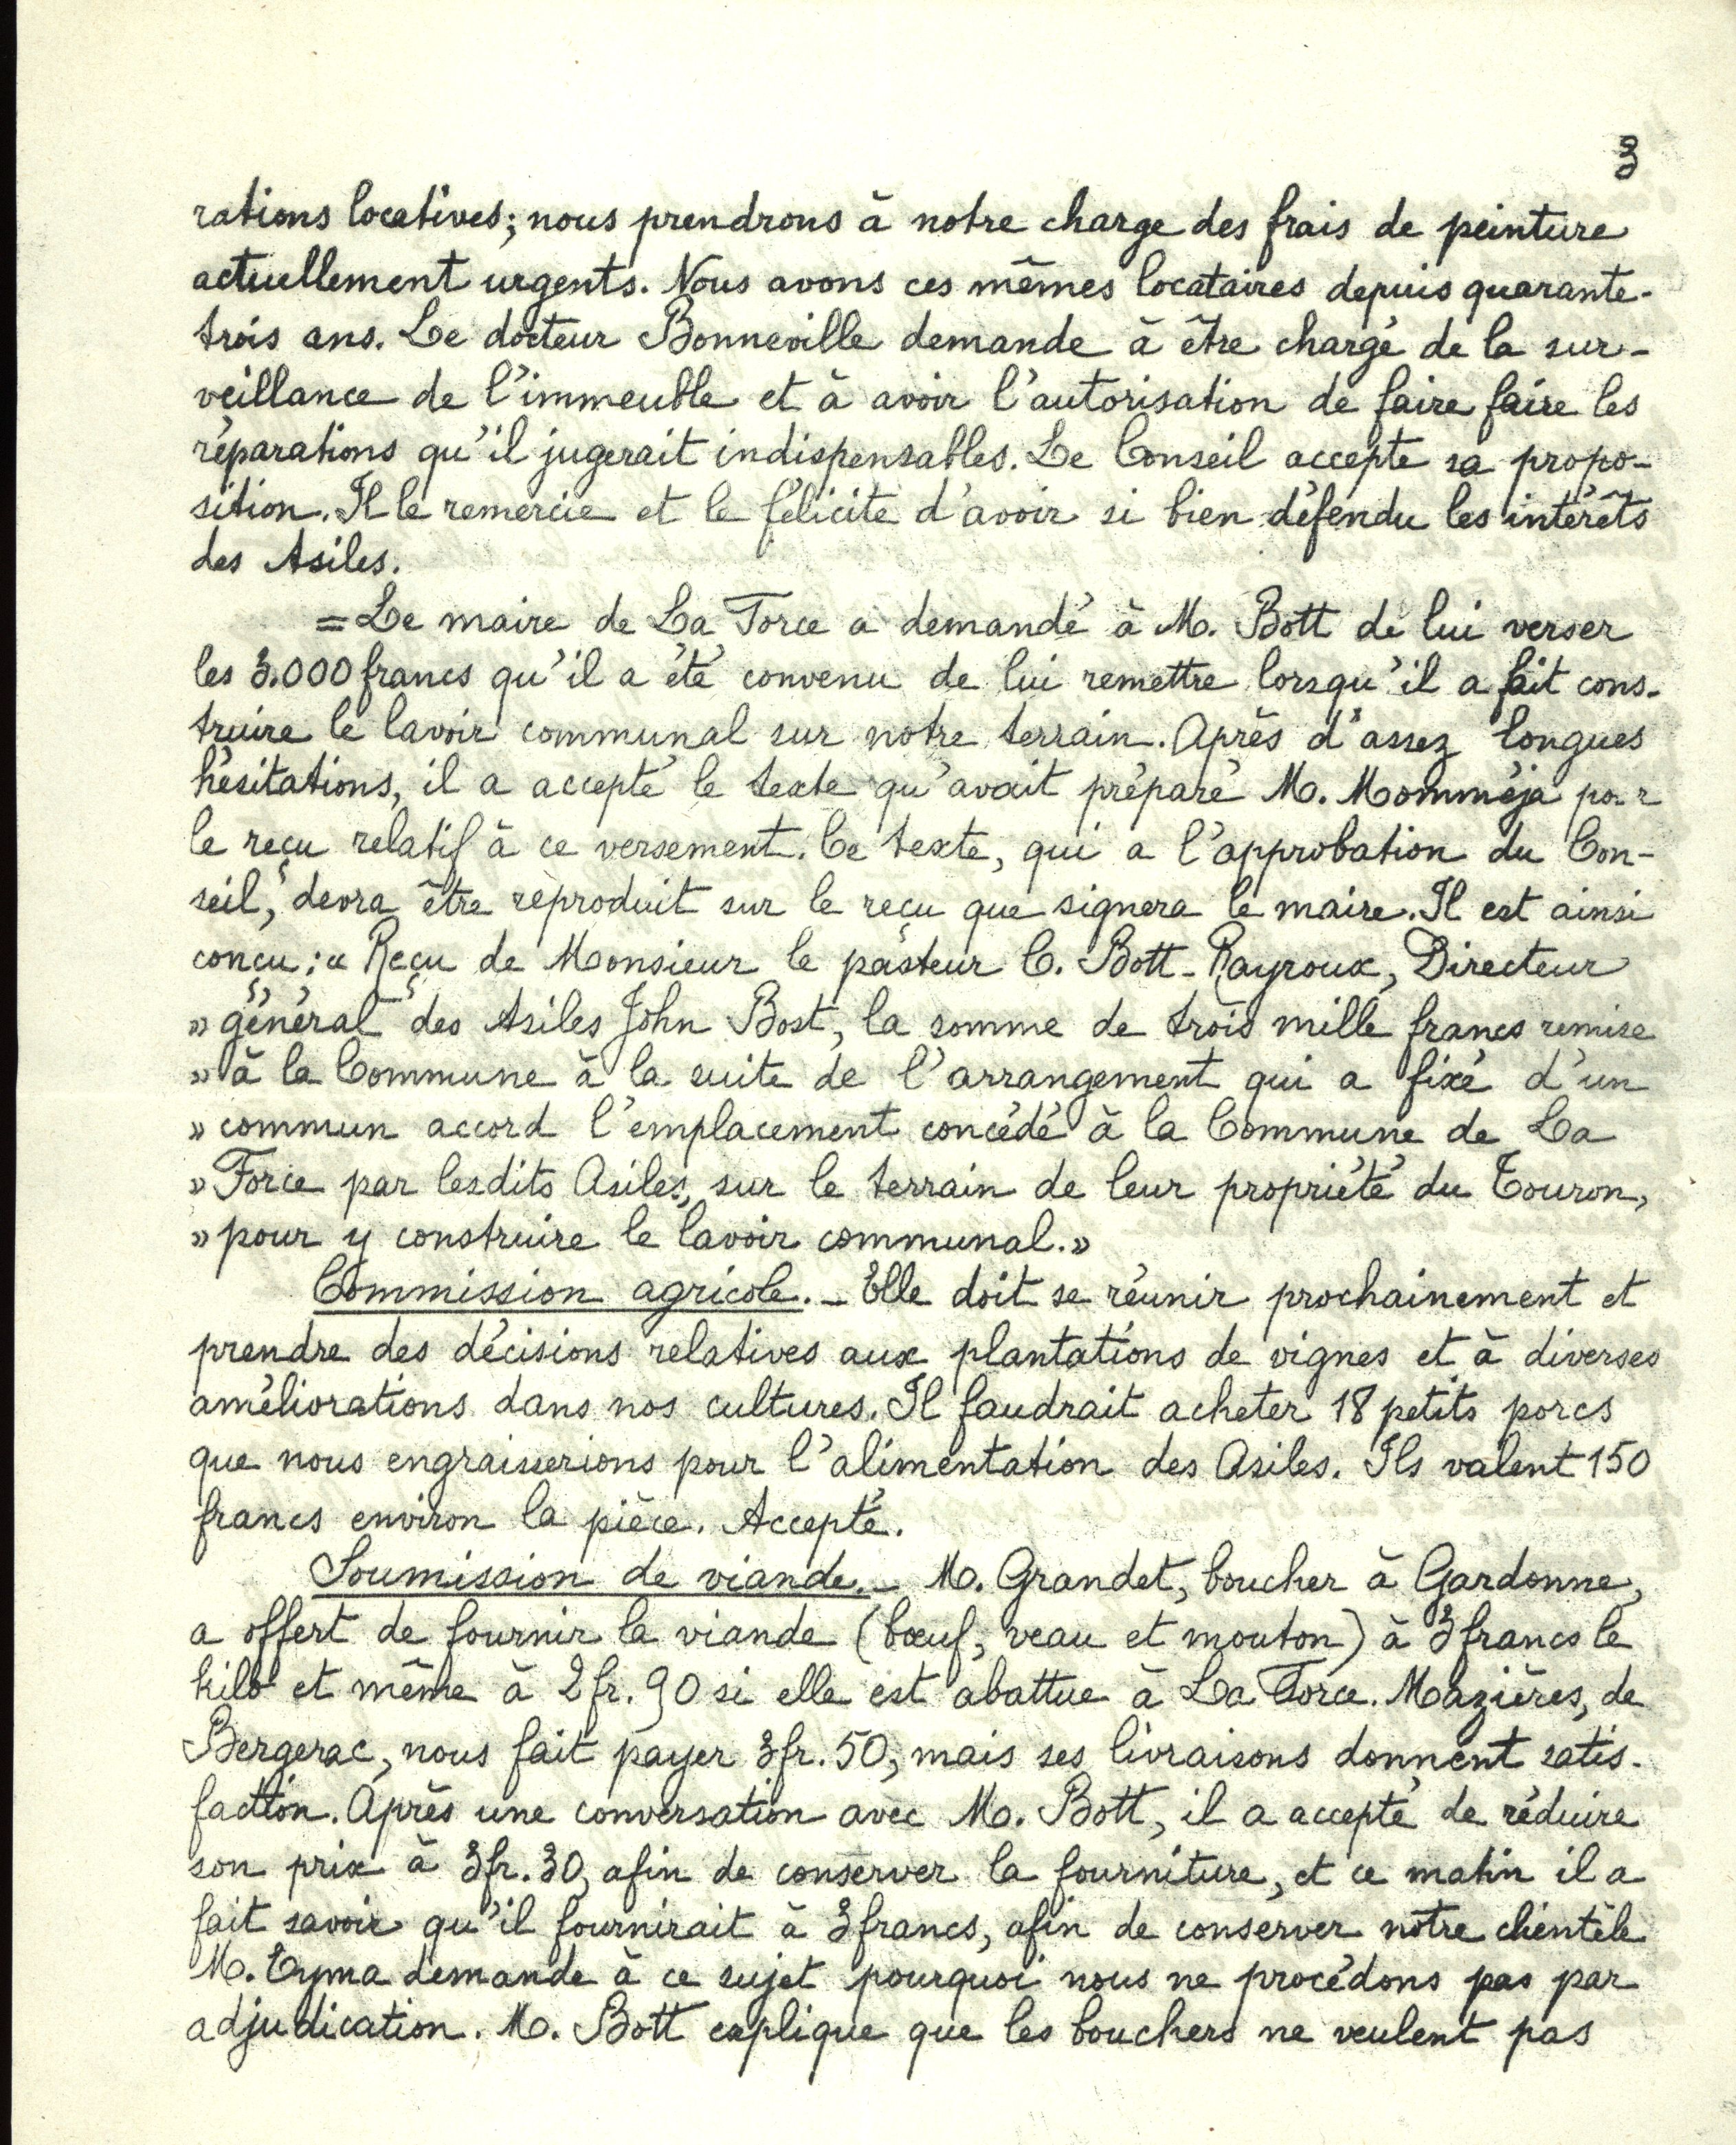 3
rations locatives; nous prendrons à notre charge des frais de peinture
actuellement urgents. Nous avons ces mêmes locataires depuis quarante-
trois ans. Le docteur Bonneville demande à être chargé de la sur-
veillance de l'immeuble et à avoir l'autorisation de faire faire les
réparations qu'il jugerait indispensables. Le Conseil accepte sa propo-
sition. Il le remercie et le félicite d'avoir si bien défendu les intérêts
des Asiles.
= Le maire de La Force a demandé à M. Bott de lui verser
les 3.000 francs qu'il a été convenu de lui remettre lorsqu'il a fait cons-
truire le lavoir communal sur notre terrain. Après d'assez longues
hésitations, il a accepté le texte qu'avait préparé M. Momméja pour
le reçu relatif à ce versement. Ce texte, qui a l'approbation du Con-
seil, devra être reproduit sur le reçu que signera le maire. Il est ainsi
conçu: « Reçu de Monsieur le pasteur C. Bott-Rayroux, Directeur
» général des Asiles John Bost, la somme de trois mille francs remise
» à la Commune à la suite de l'arrangement qui a fixé d'un
» commun accord l'emplacement concédé à la Commune de La
» Force par lesdits Asiles, sur le terrain de leur propriété du Touron,
» pour y construire le lavoir communal.»
Commission agricole. - Elle doit se réunir prochainement et
prendre des décisions relatives aux plantations de vignes et à diverses
améliorations dans nos cultures. Il faudrait acheter 18 petits porcs
que nous engraisserions pour l'alimentation des Asiles. Ils valent 150
francs environ la pièce. Accepté.
Soumission de viande. - M. Grandet, boucher à Gardonne,
a offert de fournir la viande (bœuf, veau et mouton) à 3 francs le
kilo et même à 2 fr. 90 si elle est abattue à La Force. Mazières, de
Bergerac, nous fait payer 3 fr. 50, mais ses livraisons donnent satis-
faction. Après une conversation avec M. Bott, il a accepté de réduire
son prix à 3 fr. 30, afin de conserver la fourniture, et ce matin il a
fait savoir qu'il fournirait à 3 francs, afin de conserver notre clientèle
M. Eyma demande à ce sujet pourquoi nous ne procédons pas par
adjudication. M. Bott explique que les bouchers ne veulent pas